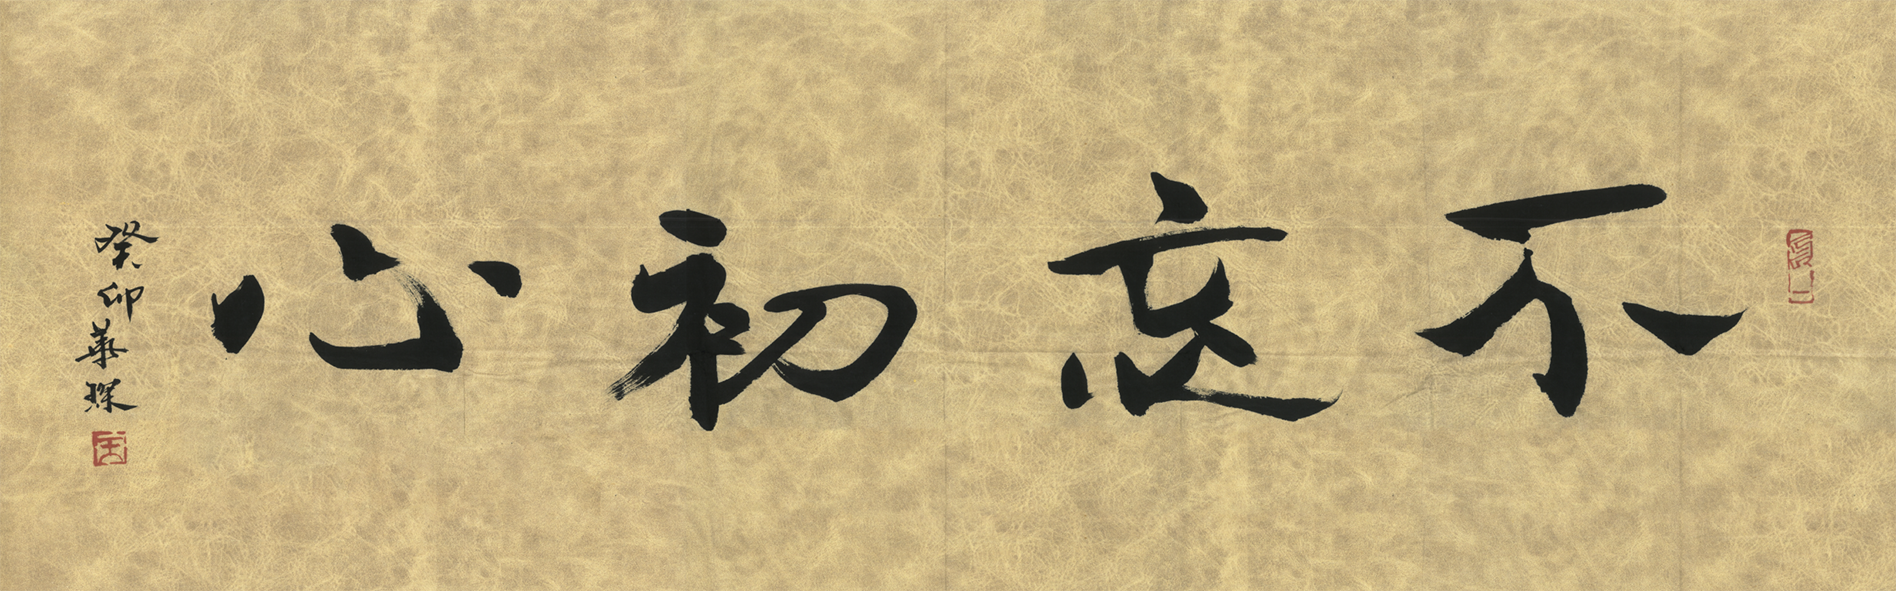 不忘初心
癸卯華琛